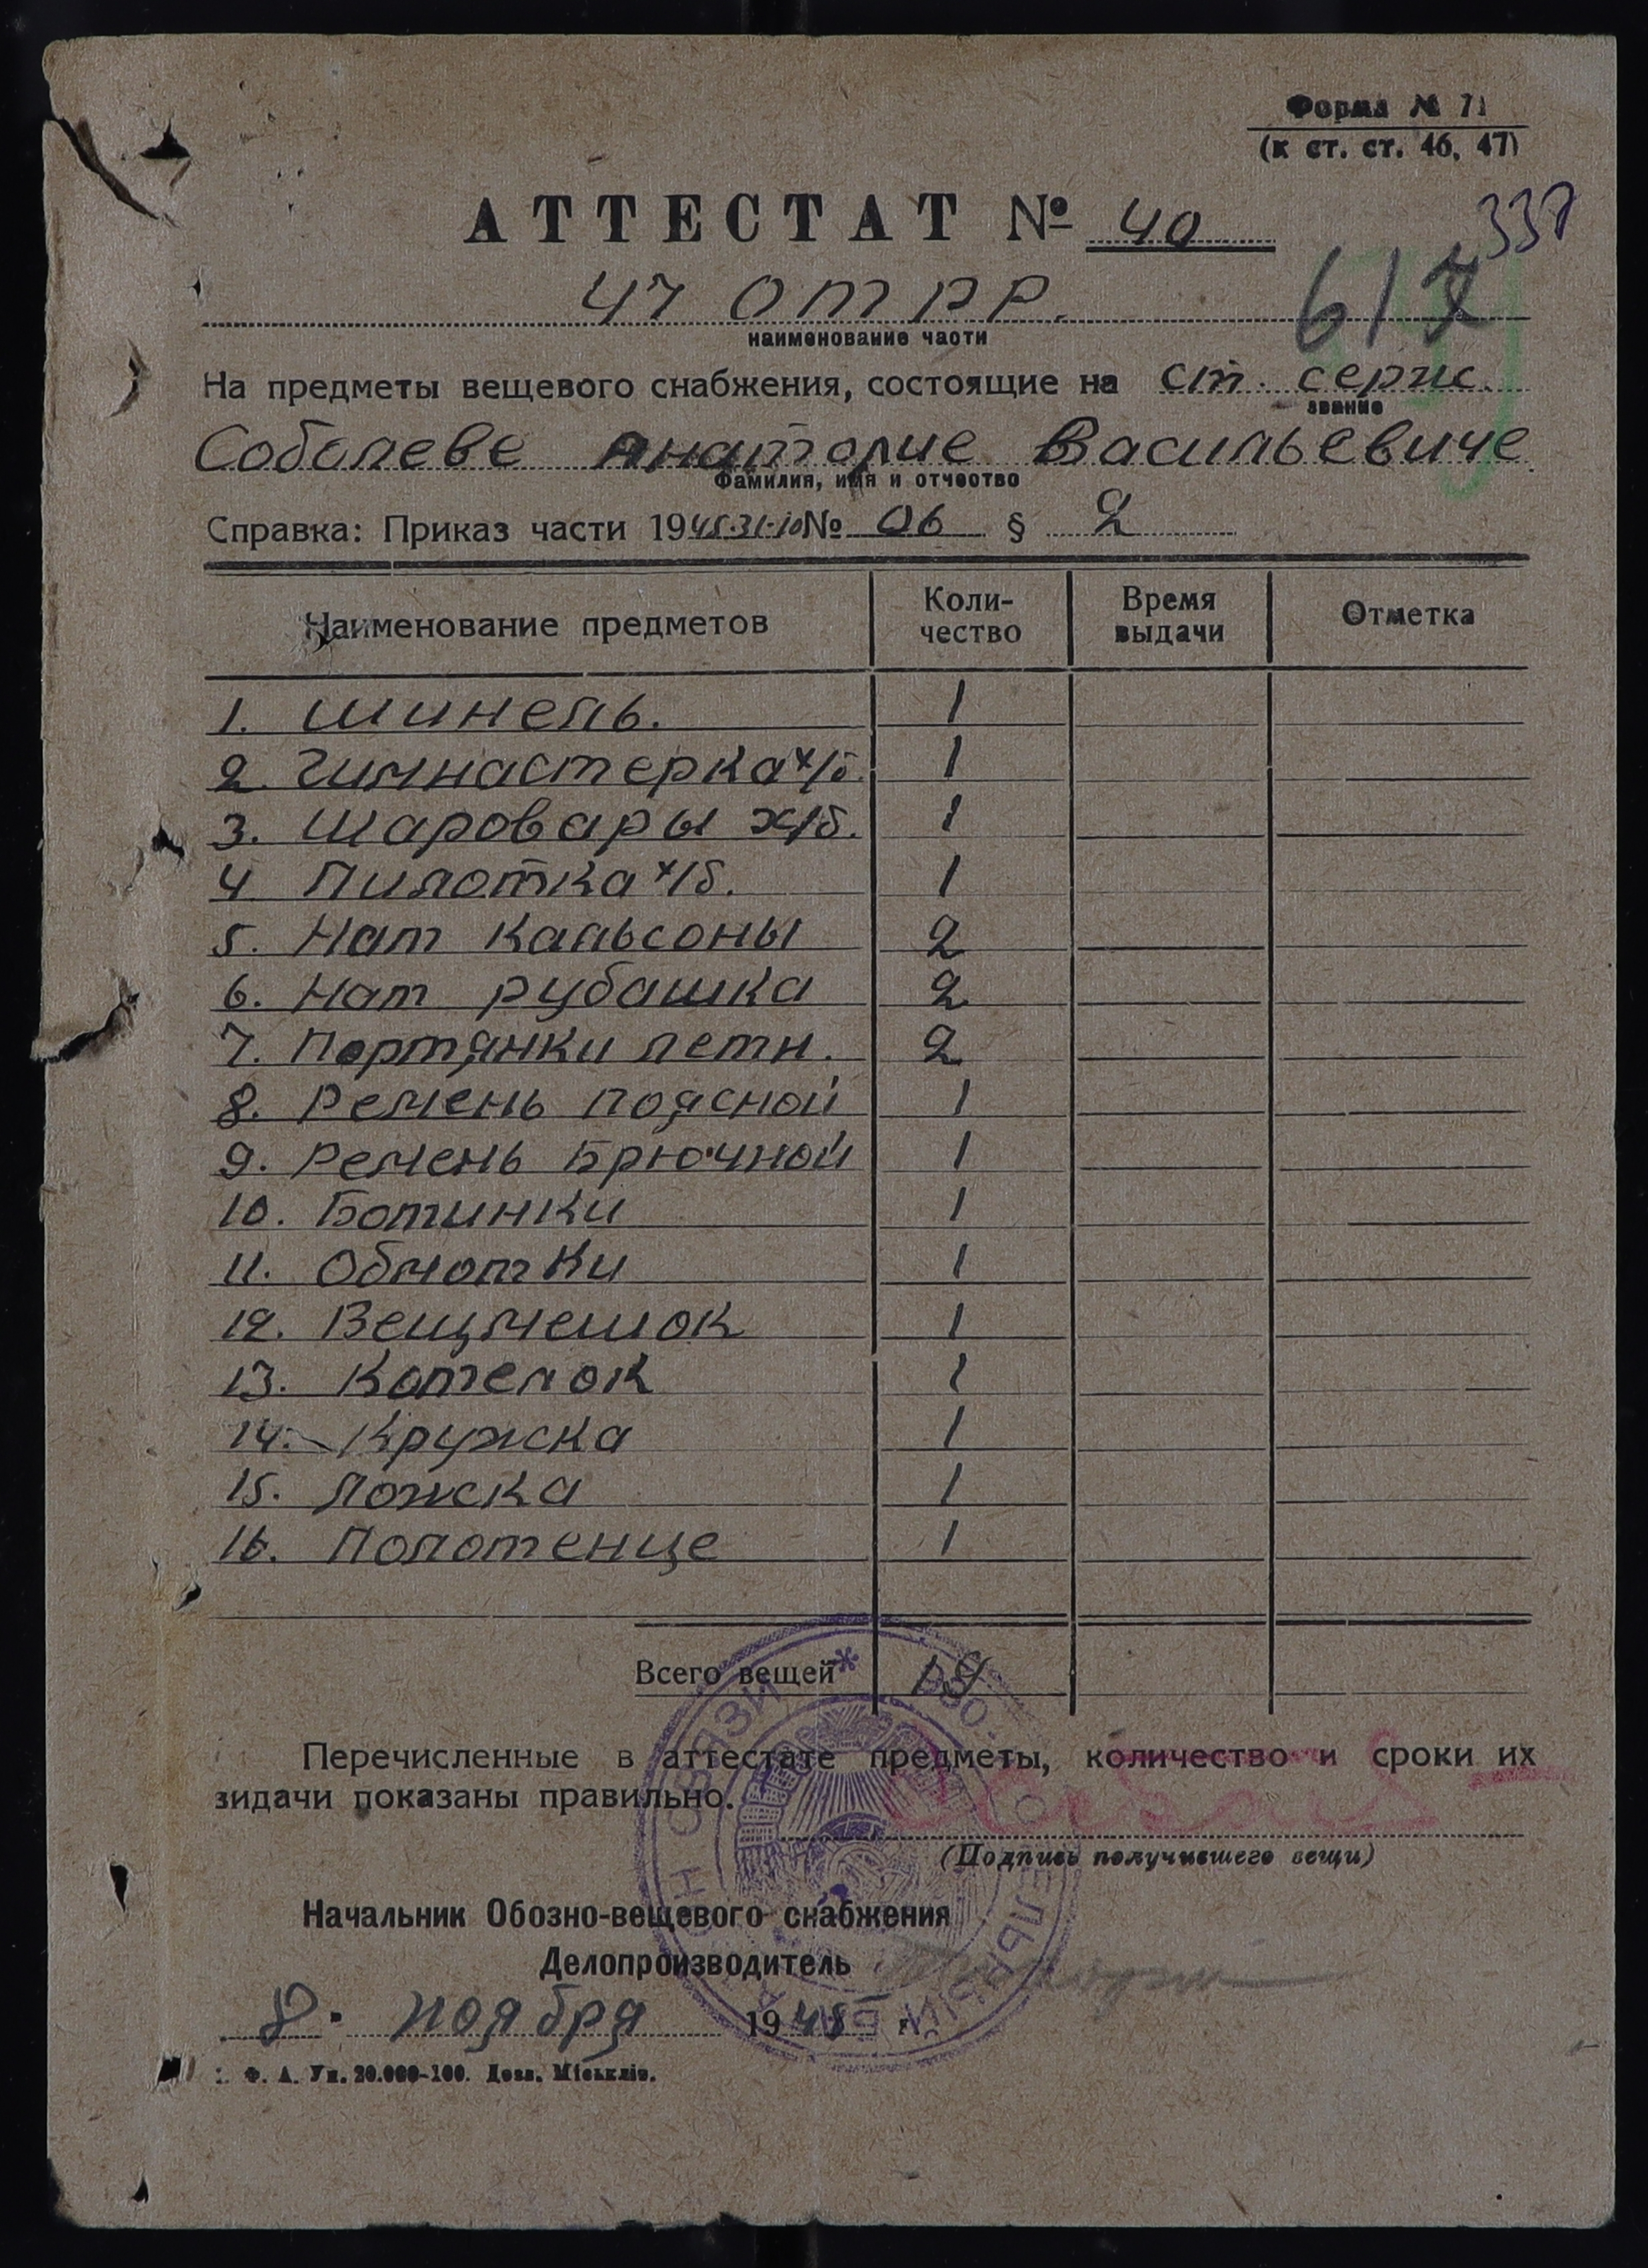 Форма № 71
(к ст. ст. 46, 47)
АТТЕСТАТ № 40
337
617
47 ОТРР.
наименование части
На предметы вещевого снабжения, состоящие на ст. серж.
звание
Соболеве Анатолие Васильевиче
Фамилия, имя и отчество
Справка: Приказ части 1945.31-10 № 06 § 2
Наименование предметов Коли-чество Время выдачи Отметка
1. Шинель. 1
2. Гимнастерка х/б. 1
3. Шаровары х/б. 1
4 Пилотка х/б. 1
5. Нат кальсоны 2
6. Нат рубашка 2
7. Портянки летн. 2
8. Ремень поясной 1
9. Ремень Брючной 1
10. Ботинки 1
11. Обмотки 1
12. Вещмешок 1
13. Котелок 1
14. Кружка 1
15. Ложка 1
16. Полотенце 1
Всего вещей 19
Перечисленные в аттестате предметы, количество и сроки их
зидачи показаны правильно.
(Подпись получившего вещи)
Начальник Обозно-вещевого снабжения
Делопроизводитель
8. ноября 1945 г.
Ф. А. Уп. 20.000-100. Дозв. Міськліт.